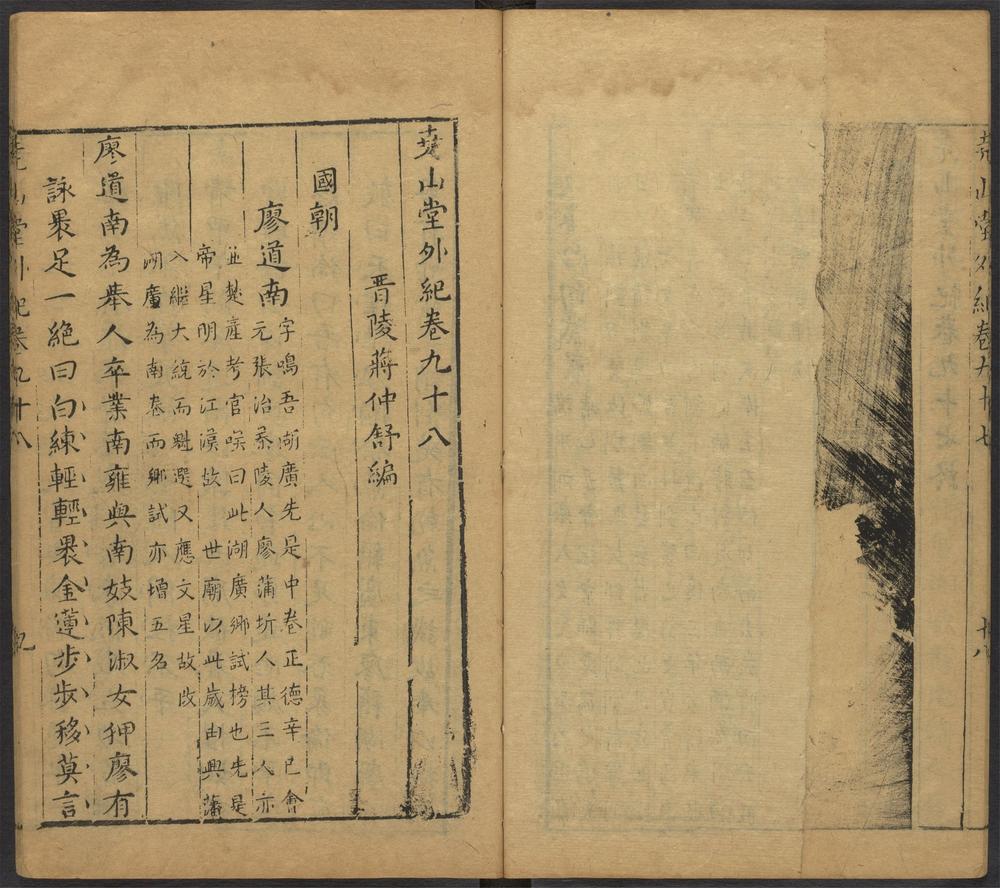 堯山堂外紀卷九十七
十八
堯山堂外紀卷九十八
晋陵蔣仲舒編
國朝
廖道南
字鳴吾湖廣先是中卷正德辛巳會
元張治茶陵人廖蒲圻人其三人亦
並楚產考官嘆曰此湖廣鄉試榜也先是
帝星明於江漢故 世廟以此歲由興藩
入繼大統而魁選又應文星故改
湖廣為南卷而鄉試亦增五名
廖道南為舉人卒業南雍與南妓陳淑女狎廖有
詠裹足一絕曰白練輕輕裹金蓮步步移莫言
堯山堂外紀卷九十八